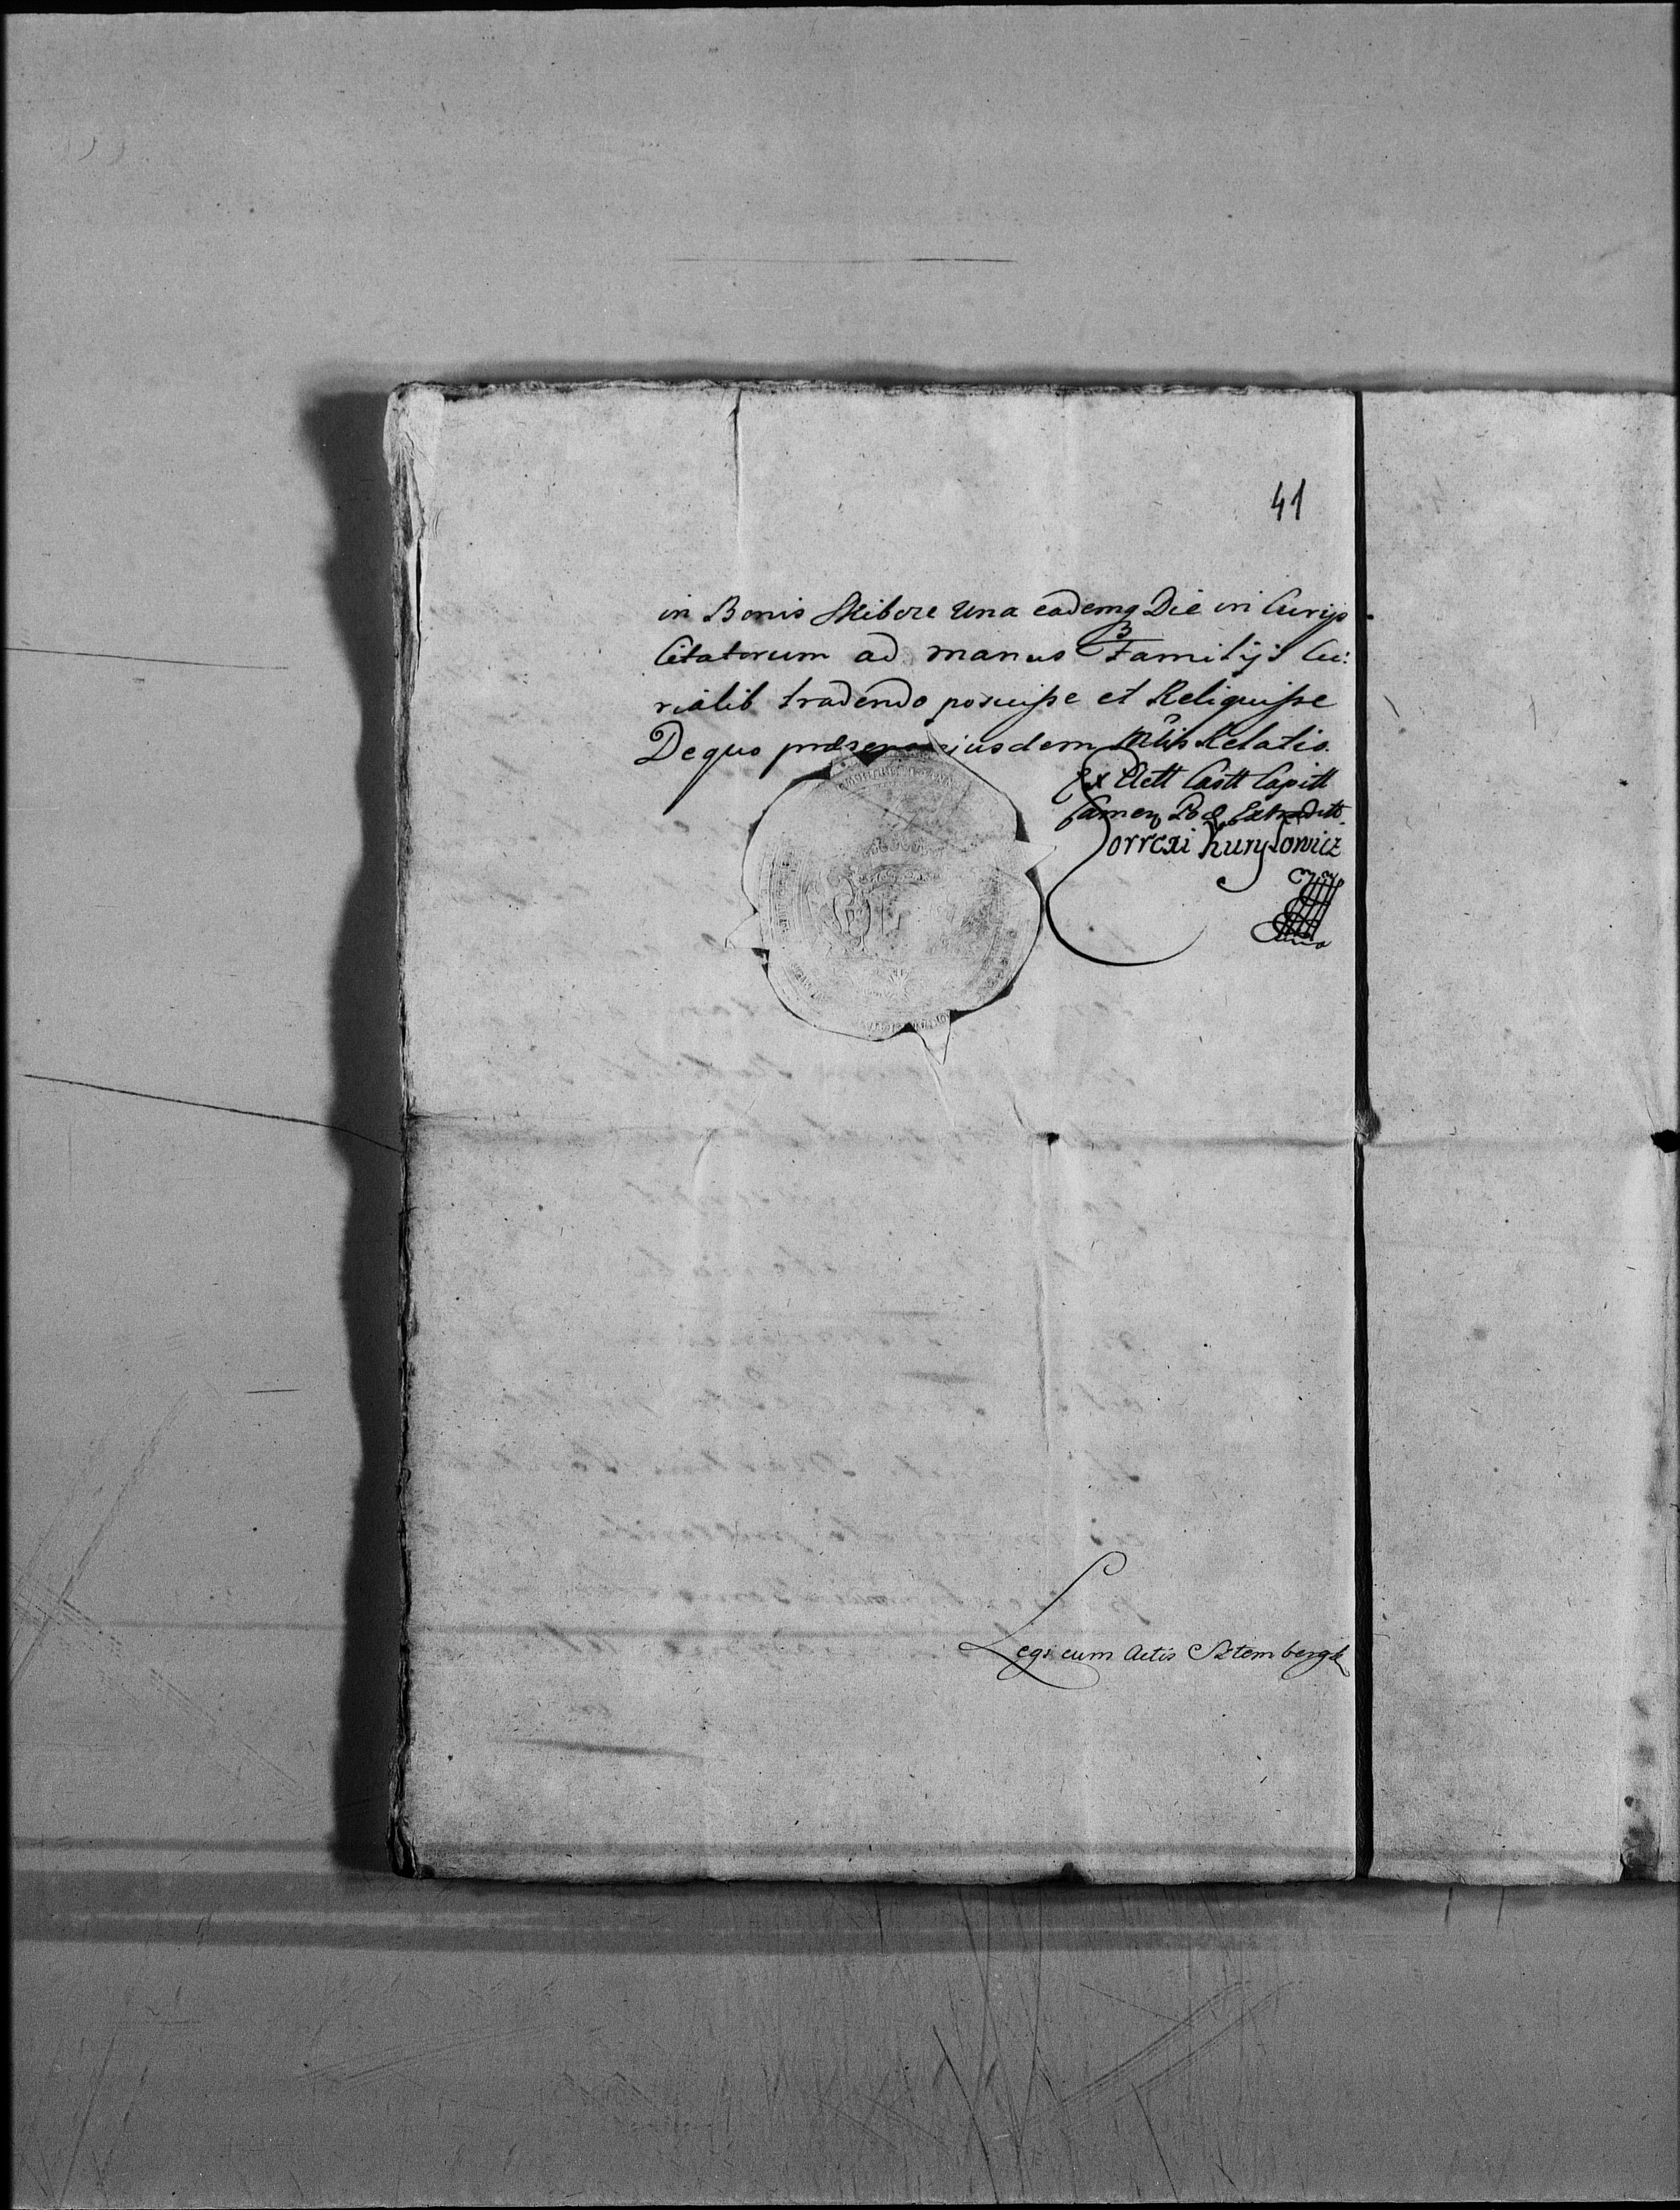 41
in Bonis Skibore Una eademq Die in Curijs
Citatorum ad manus Familijs Cu:
rialib tradendo posuisse et Reliquisse
De quo præsens eiusdem Mlis Relatio.
Ex Actt Castt Capitt
Camen Pod Extraditt
Correxi Kuryłowicz
Legi cum Actis Sztembergk